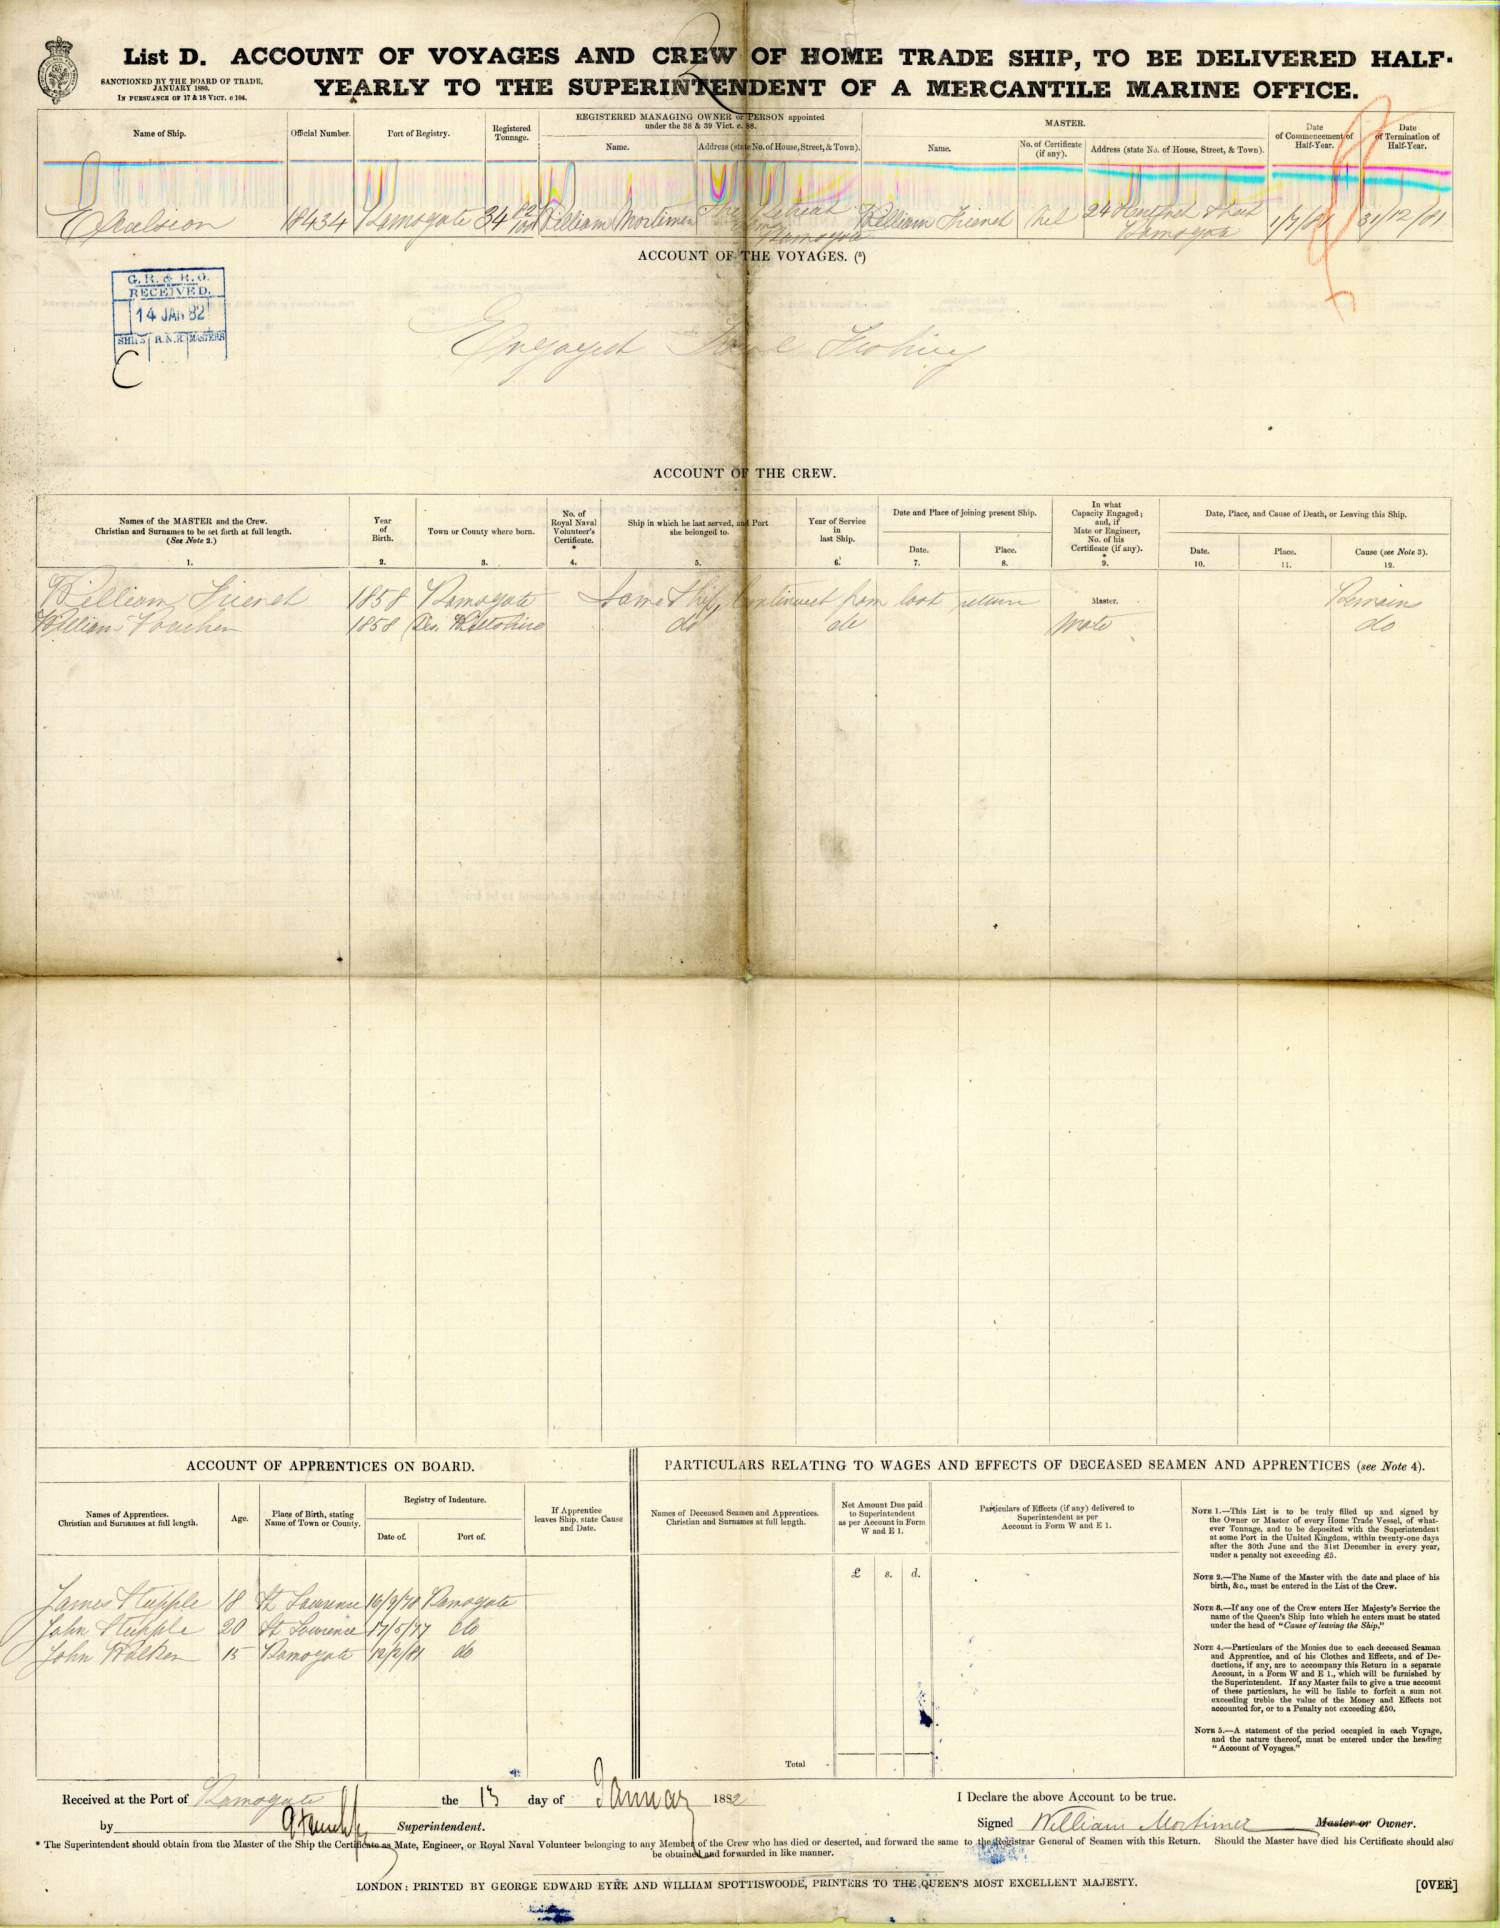 List D. ACCOUNT OF VOYAGES AND CREW OF HOME TRADE SHIP, TO BE DELIVERED HALF-
YEARLY TO THE SUPERINTENDENT OF A MERCANTILE MARINE OFFICE.
SANCTIONED BY THE BOARD OF TRADE,
JANUARY 1880,
IN PURSUANCE OF 17 & 18 VICT. c 104.
Name of Ship.
Official Number.
Port of Registry.
Registered Tonnage.
REGISTERED MANAGING OWNER or PERSON appointed
under the 38 & 39 Vict. c. 88.
Name.
Address (state No. of House, Street, & Town).
MASTER.
Name.
No. of Certificate (if any).
Address (state No. of House, Street, & Town).
Date of Commencement of Half-Year.
Date of Termination of Half-Year.
Excelsior 18434 Ramsgate 34 William Mortimer Ramsgate William Friend Nil 24 Hartford Street Ramsgate 1/7/81 31/12/81
ACCOUNT OF THE VOYAGES. (5)
G. R. & R. G.
RECEIVED.
14 JAN 82
SHIPS R.N.R MASTERS
C
Engaged Trawl Fishing
ACCOUNT OF THE CREW.
Names of the MASTER and the Crew.
Christian and Surnames to be set forth at full length.
(See Note 2.)
1.
Year of Birth.
2.
Town or County where born.
3.
No. of Royal Naval Volunteer's Certificate.
*
4.
Ship in which he last served, and Port she belonged to.
5.
Year of Service in last Ship.
6.
Date and Place of joining present Ship.
Date.
7.
Place.
8.
In what Capacity Engaged; and, if Mate or Engineer, No. of his Certificate (if any).
*
9.
Date, Place, and Cause of Death, or Leaving this Ship.
Date.
10.
Place.
11.
Cause (see Note 3).
12.
William Friend 1858 Ramsgate Same Ship, Continued from last return Master. Remain
William 1858 Wiltshire do do Mate do
ACCOUNT OF APPRENTICES ON BOARD.
Names of Apprentices.
Christian and Surnames at full length.
Age.
Place of Birth, stating Name of Town or County.
Registry of Indenture.
Date of.
Port of.
If Apprentice leaves Ship, state Cause and Date.
James Stupple 18 St Lawrence 19/9/78 Ramsgate
John Stupple 20 St Lawrence 17/5/77 do
John Walker 15 Ramsgate 12/2/81 do
PARTICULARS RELATING TO WAGES AND EFFECTS OF DECEASED SEAMEN AND APPRENTICES (see Note 4).
Names of Deceased Seamen and Apprentices.
Christian and Surnames at full length.
Net Amount Due paid to Superintendent as per Account in Form W and E 1.
£ s. d.
Particulars of Effects (if any) delivered to
Superintendent as per
Account in Form W and E 1.
Total
NOTE 1.—This List is to be truly filled up and signed by
the Owner or Master of every Home Trade Vessel, of what-
ever Tonnage, and to be deposited with the Superintendent
at some Port in the United Kingdom, within twenty-one days
after the 30th June and the 31st December in every year,
under a penalty not exceeding £5.
NOTE 2.—The Name of the Master with the date and place of his
birth, &c., must be entered in the List of the Crew.
NOTE 3.—If any one of the Crew enters Her Majesty's Service the
name of the Queen's Ship into which he enters must be stated
under the head of "Cause of leaving the Ship."
NOTE 4.—Particulars of the Monies due to each deceased Seaman
and Apprentice, and of his Clothes and Effects, and of De-
ductions, if any, are to accompany this Return in a separate
Account, in a Form W and E 1., which will be furnished by
the Superintendent. If any Master fails to give a true account
of these particulars, he will be liable to forfeit a sum not
exceeding treble the value of the Money and Effects not
accounted for, or to a Penalty not exceeding £50.
NOTE 5.—A statement of the period occupied in each Voyage,
and the nature thereof, must be entered under the heading
"Account of Voyages."
Received at the Port of Ramsgate the 13 day of January 1882
by Superintendent.
I Declare the above Account to be true.
Signed William Mortimer Master or Owner.
* The Superintendent should obtain from the Master of the Ship the Certificate as Mate, Engineer, or Royal Naval Volunteer belonging to any Member of the Crew who has died or deserted, and forward the same to the Registrar General of Seamen with this Return. Should the Master have died his Certificate should also
be obtained and forwarded in like manner.
LONDON: PRINTED BY GEORGE EDWARD EYRE AND WILLIAM SPOTTISWOODE, PRINTERS TO THE QUEEN'S MOST EXCELLENT MAJESTY.
[OVER]